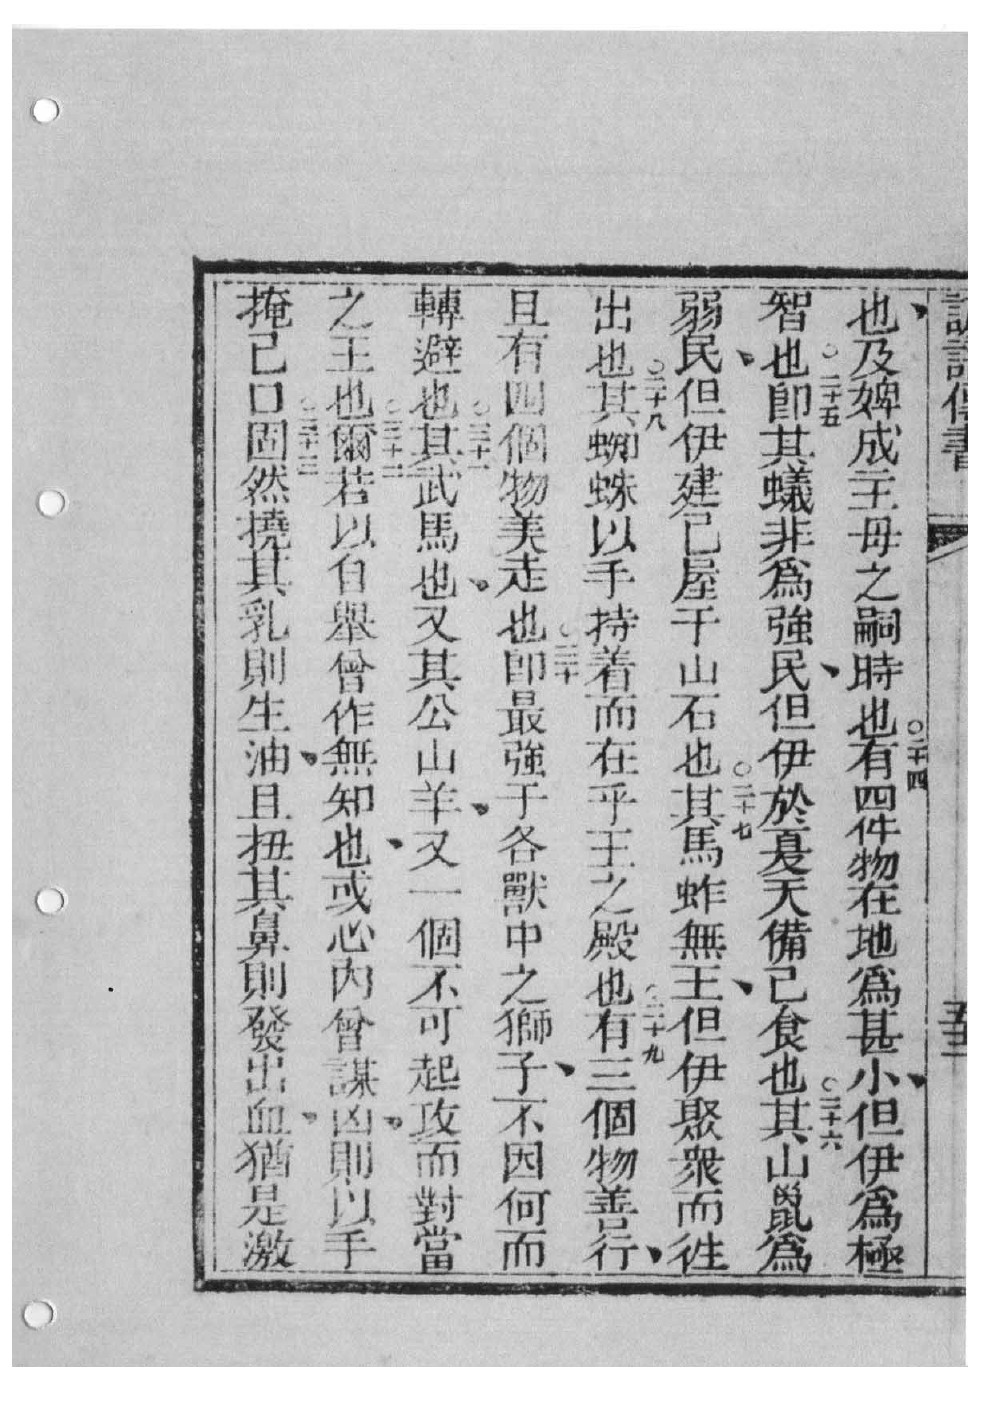 諺語傳書 五三
也及婢成主母之嗣時也○二十四有四件物在地爲甚小但伊爲極
智也○二十五卽其蟻非爲強民但伊於夏天備己食也○二十六其山鼠爲
弱民但伊建己屋于山石也○二十七其馬蚱無王但伊聚衆而徃
出也○二十八其蜘蛛以手持着而在乎王之殿也○二十九有三個物善行
且有四個物美走也○三十卽最強于各獸中之獅子不因何而
轉避也○三十一其武馬也又其公山羊又一個不可起攻而對當
之王也○三十二爾若以自舉曾作無知也或心內曾謀凶則以手
掩己口○三十三固然撓其乳則生油且扭其鼻則發出血猶是激